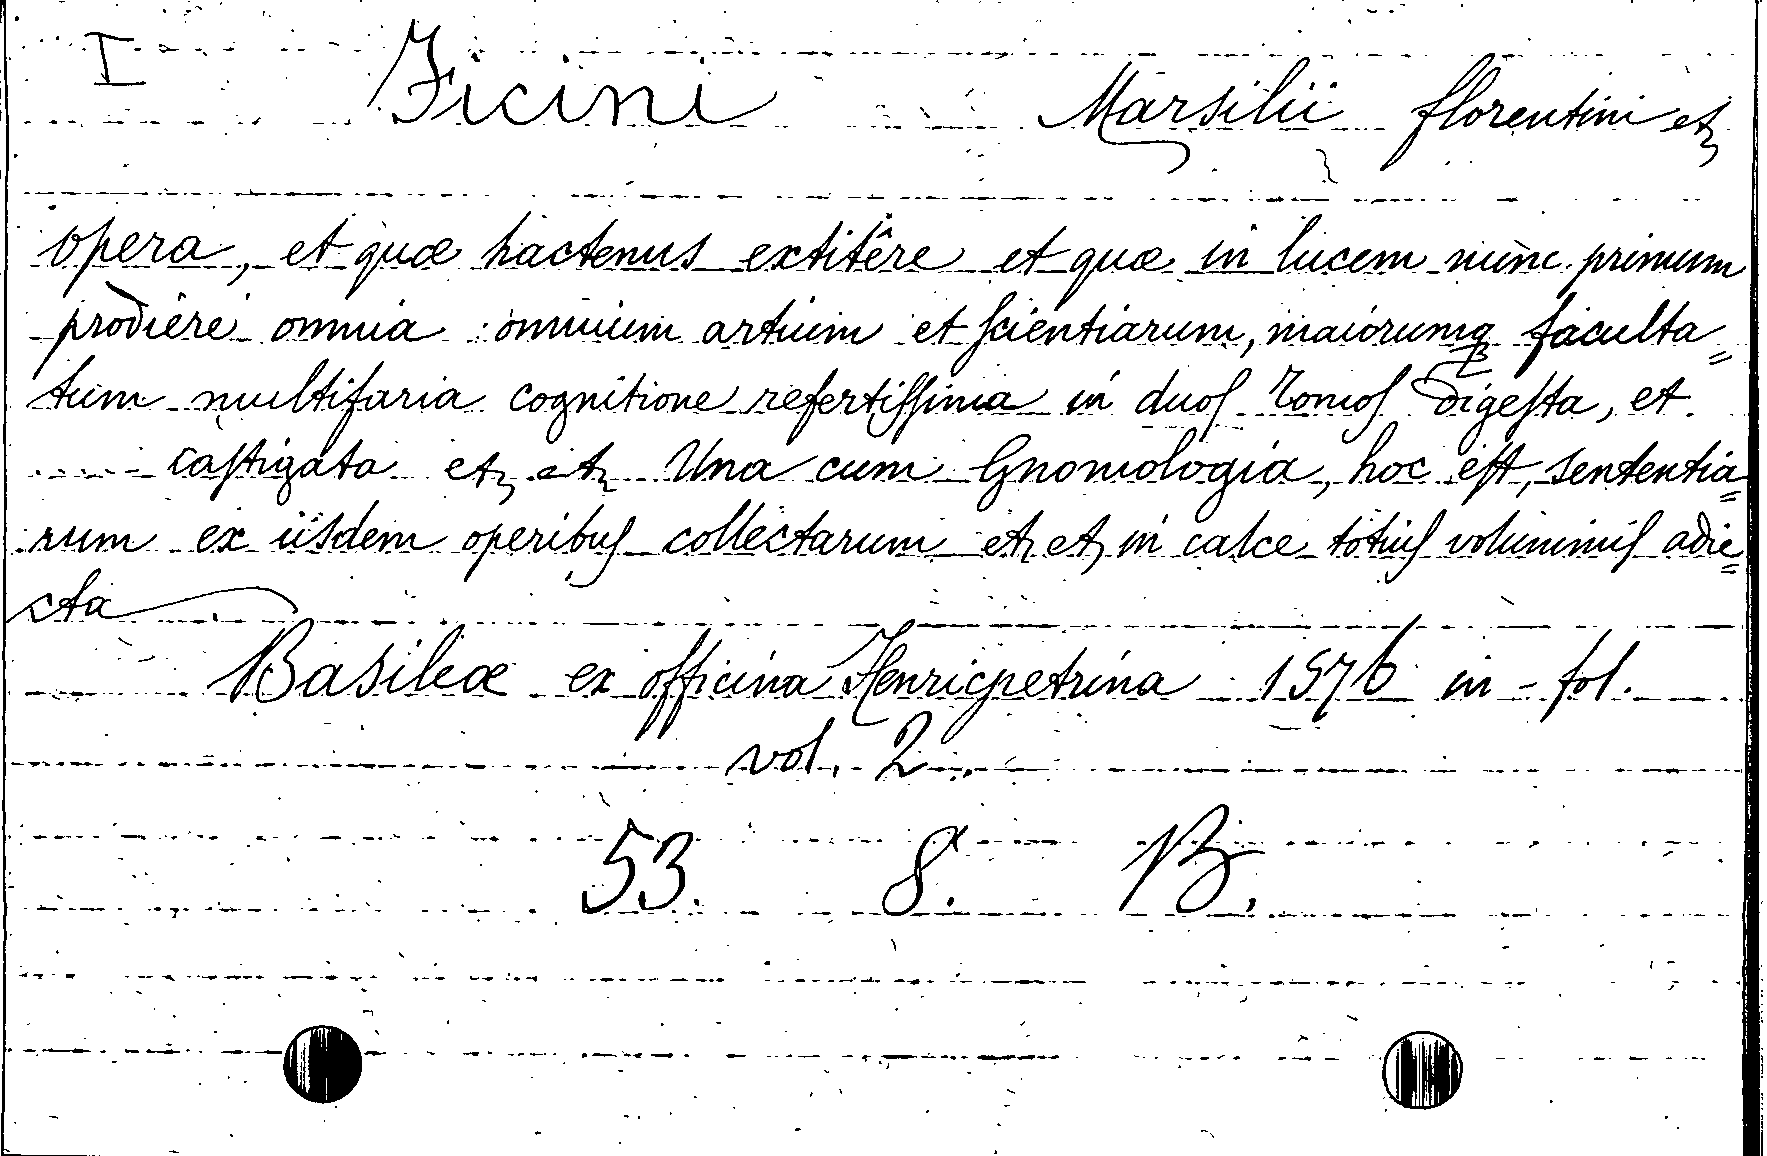 I Ficini Marsilii florentini etz
opera, et quæ hactenus extitêre et quæ in lucem nunc primum
prodiere omnia omnium artium et ſcientiarum, maiorumq faculta=
tum multifaria cognitione refertiſſima in duoſ Tomoſ digeſta, et
caſtigata etz etz Una cum Gnomologia, hoc eſt, sententia=
rum ex iisdem operibuſ collectarum etz etz in calce totiuſ voluminiſ adie=
cta
Basileæ ex officina Henricpetrina 1576 in-fol.
vol. 2.
53. 8. B.